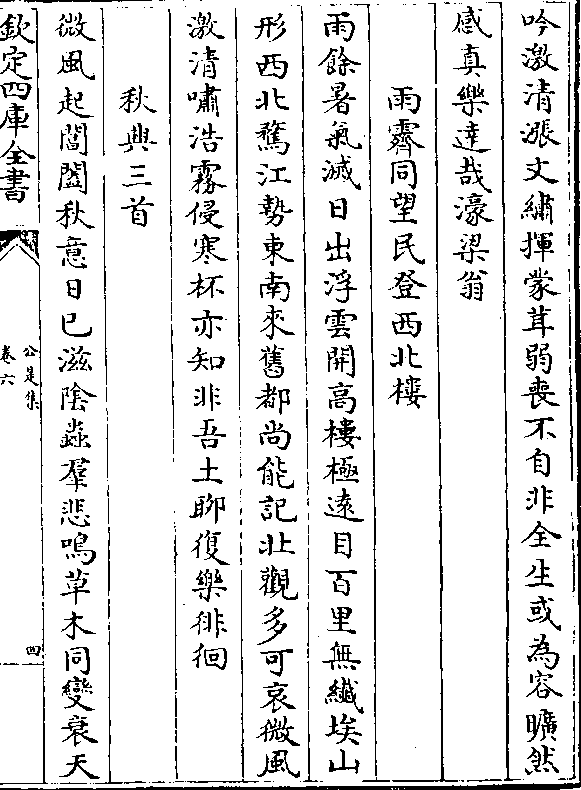 吟激清漲文繡揮蒙茸弱喪不自非全生或為容曠然
感真樂達哉濠梁翁
雨霽同望民登西北樓
雨餘暑氣滅日出浮雲開高樓極遠目百里無纖埃山
形西北騖江勢東南來舊都尚能記壯觀多可哀微風
激清嘯浩霧侵寒杯亦知非吾土聊復樂徘徊
秋興三首
微風起閶闔秋意日已滋陰蟲羣悲鳴草木同變衰天
欽定四庫全書
公是集
卷六
四